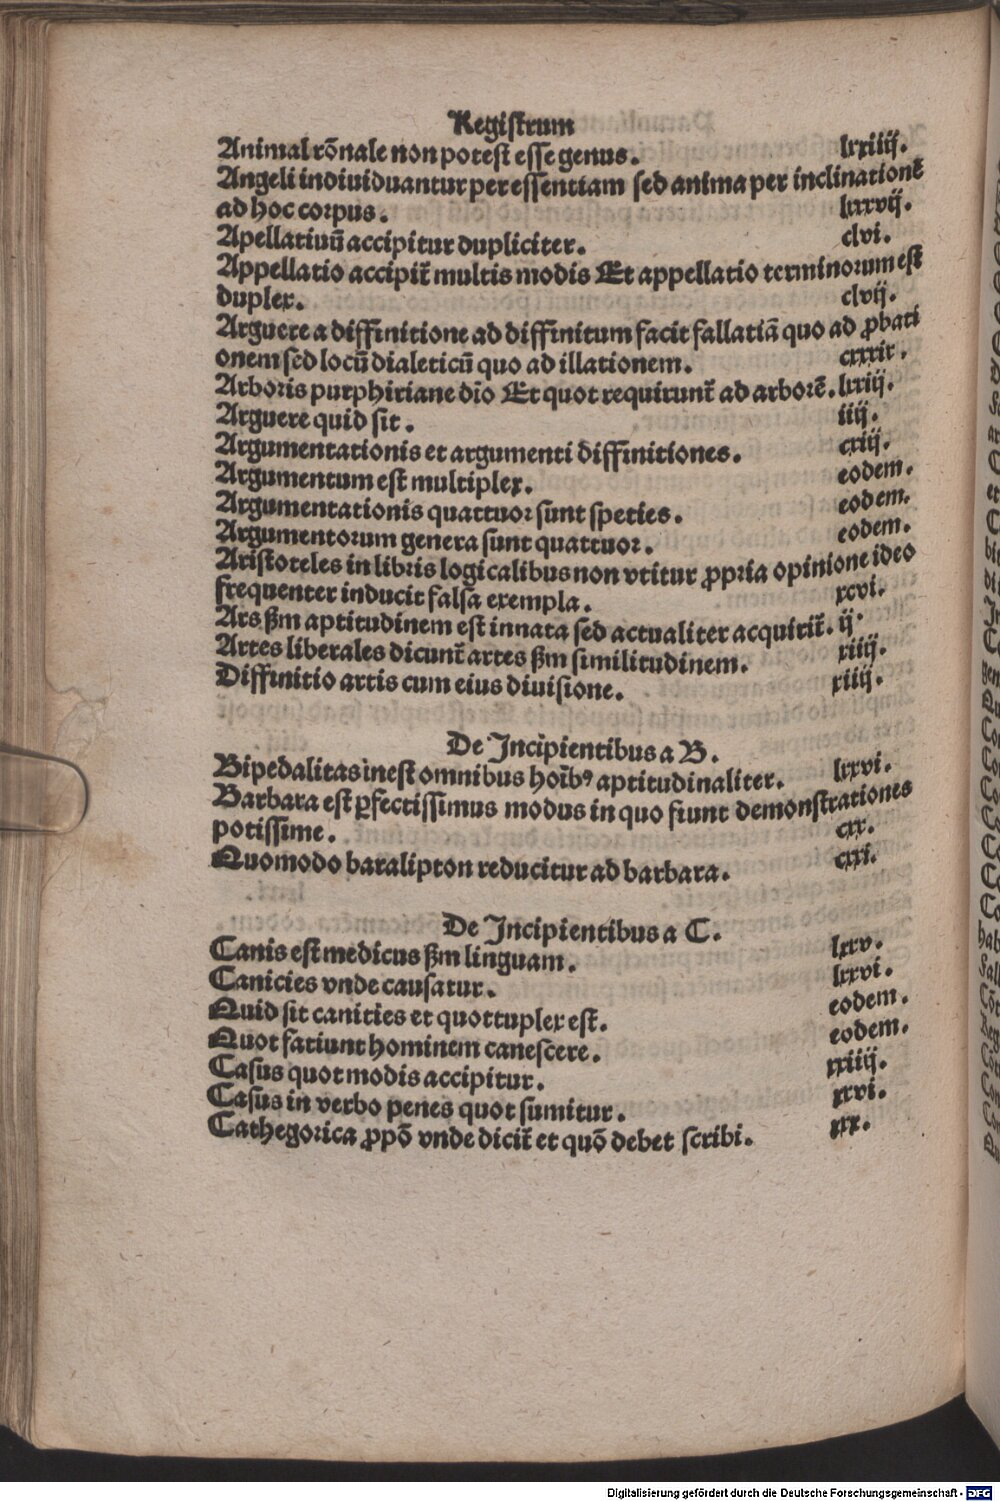 Registrum
Animal rōnale non potest esse genus. lxiiij.
Angeli indiuiduantur per essentiam sed anima per inclinationē
ad hoc corpus. lxxxvij.
Apellatiuū accipitur dupliciter. clvi.
Appellatio accipit̄ multis modis Et appellatio terminorum est
duplex. clvij.
Arguere a diffinitione ad diffinitum facit fallatiā quo ad ꝓbati
onem sed locū dialeticū quo ad illationem. cxxxix.
Arboris purphiriane dīo Et quot requirunt̄ ad arborē. lxxiij.
Arguere quid sit. iiij.
Argumentationis et argumenti diffinitiones. cxiij.
Argumentum est multiplex. eodem.
Argumentationis quattuor sunt speties. eodem.
Argumentorum genera sunt quattuor. eodem.
Aristoteles in libris logicalibus non vtitur ꝓpria opinione ideo
frequenter inducit falsa exempla. xcvi.
Ars ẞm aptitudinem est innata sed actualiter acquirit̄. ij.
Artes liberales dicunt̄ artes ẞm similitudinem. xiiij.
Diffinitio artis cum eius diuisione. xiiij.
De Incipientibus a B.
Bipedalitas inest omnibus hoībꝰ aptitudinaliter. lxxvi.
Barbara est ꝑfectissimus modus in quo fiunt demonstrationes
potissime. cxx.
Quomodo baralipton reducitur ad barbara. cxxi.
De Incipientibus a C.
Canis est medicus ẞm linguam. lxxv.
Canicies vnde causatur. lxxvi.
Quid sit canities et quottuplex est. eodem.
Quot fatiunt hominem canescere. eodem.
Casus quot modis accipitur. xxiiij.
Casus in verbo penes quot sumitur. xxvi.
Cathegorica ꝓpō vnde dicit̄ et quō debet scribi. xxx.
Digitalisierung gefördert durch die Deutsche Forschungsgemeinschaft - DFG